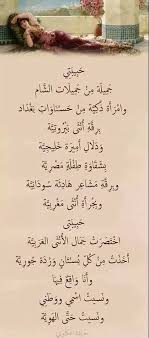 حَبِيبَتِي
جَمِيلَةٌ مِنْ جَمِيلَاتِ الشَّام
وَامْرَأَةٌ ذَكِيَّةٌ مِنْ حَسْنَاوَاتِ بَغْدَاد
بِرِقَّةِ أُنْثَى بَيْرُوتِيَّة
وَدَلَالِ أَمِيرَةٍ خَلِيجِيَّة
بِشَقَاوَةِ طِفْلَةٍ مِصْرِيَّة
وبِرِقَّةِ مَشَاعِرَ هَادِئَة سُودَانِيَّة
وبِجُرأَةِ أُنْثَى مَغْرِبِيَّة
حَبِيبَتِي
اخْتَصَرْتِ جَمَالَ الأُنْثَى العَرَبِيَّة
أَخَذْتِ مِنْ كُلِّ بُسْتَانٍ وَرْدَةً جُورِيَّة
وَأَنَا وَاقِعٌ فِيهَا
ونَسِيتُ اسْمِي وَوَطَنِي
وَنَسِيتُ حَتَّى الهَوِيَّة